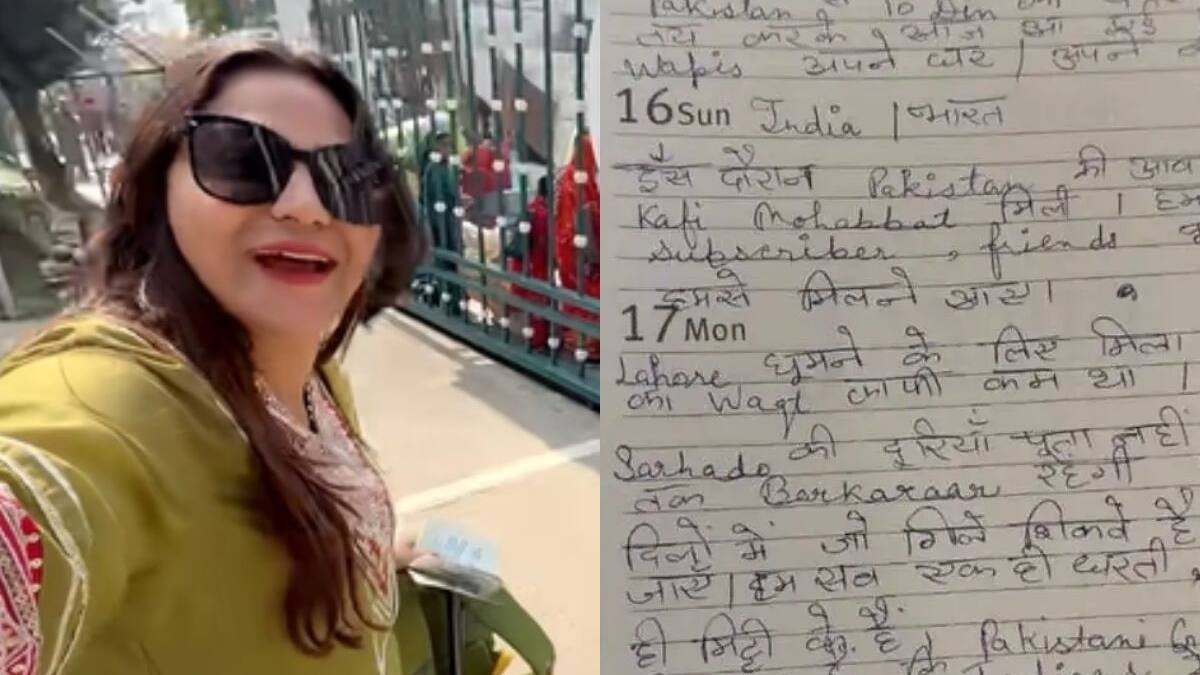 Pakistan से 10 Din का
तय करके आज आ गई
Wapis अपने घर | अपने
16 Sun India | भारत
इस दौरान Pakistan की आव
Kafi Mohabbat मिली । हम
subscriber, friends
हमसे मिलने आए।
17 Mon
Lahore घूमने के लिए मिला
का Waqt काफी कम था ।
Sarhado की दूरियाँ पता नहीं
तक Barkaraar रहेगी
दिलों में जो गिले शिकवे है
जाएं | हम सब एक ही धरती
ही मिट्टी के है। Pakistani